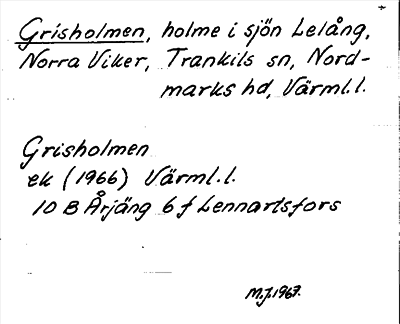 Grisholmen, holme i sjön Lelång,
Norra Viker, Trankils sn, Nord-
marks hd, Värml.l.
Grisholmen
ek (1966) Värml.l.
10 B Årjäng 6 f Lennartsfors
M.J. 1967.